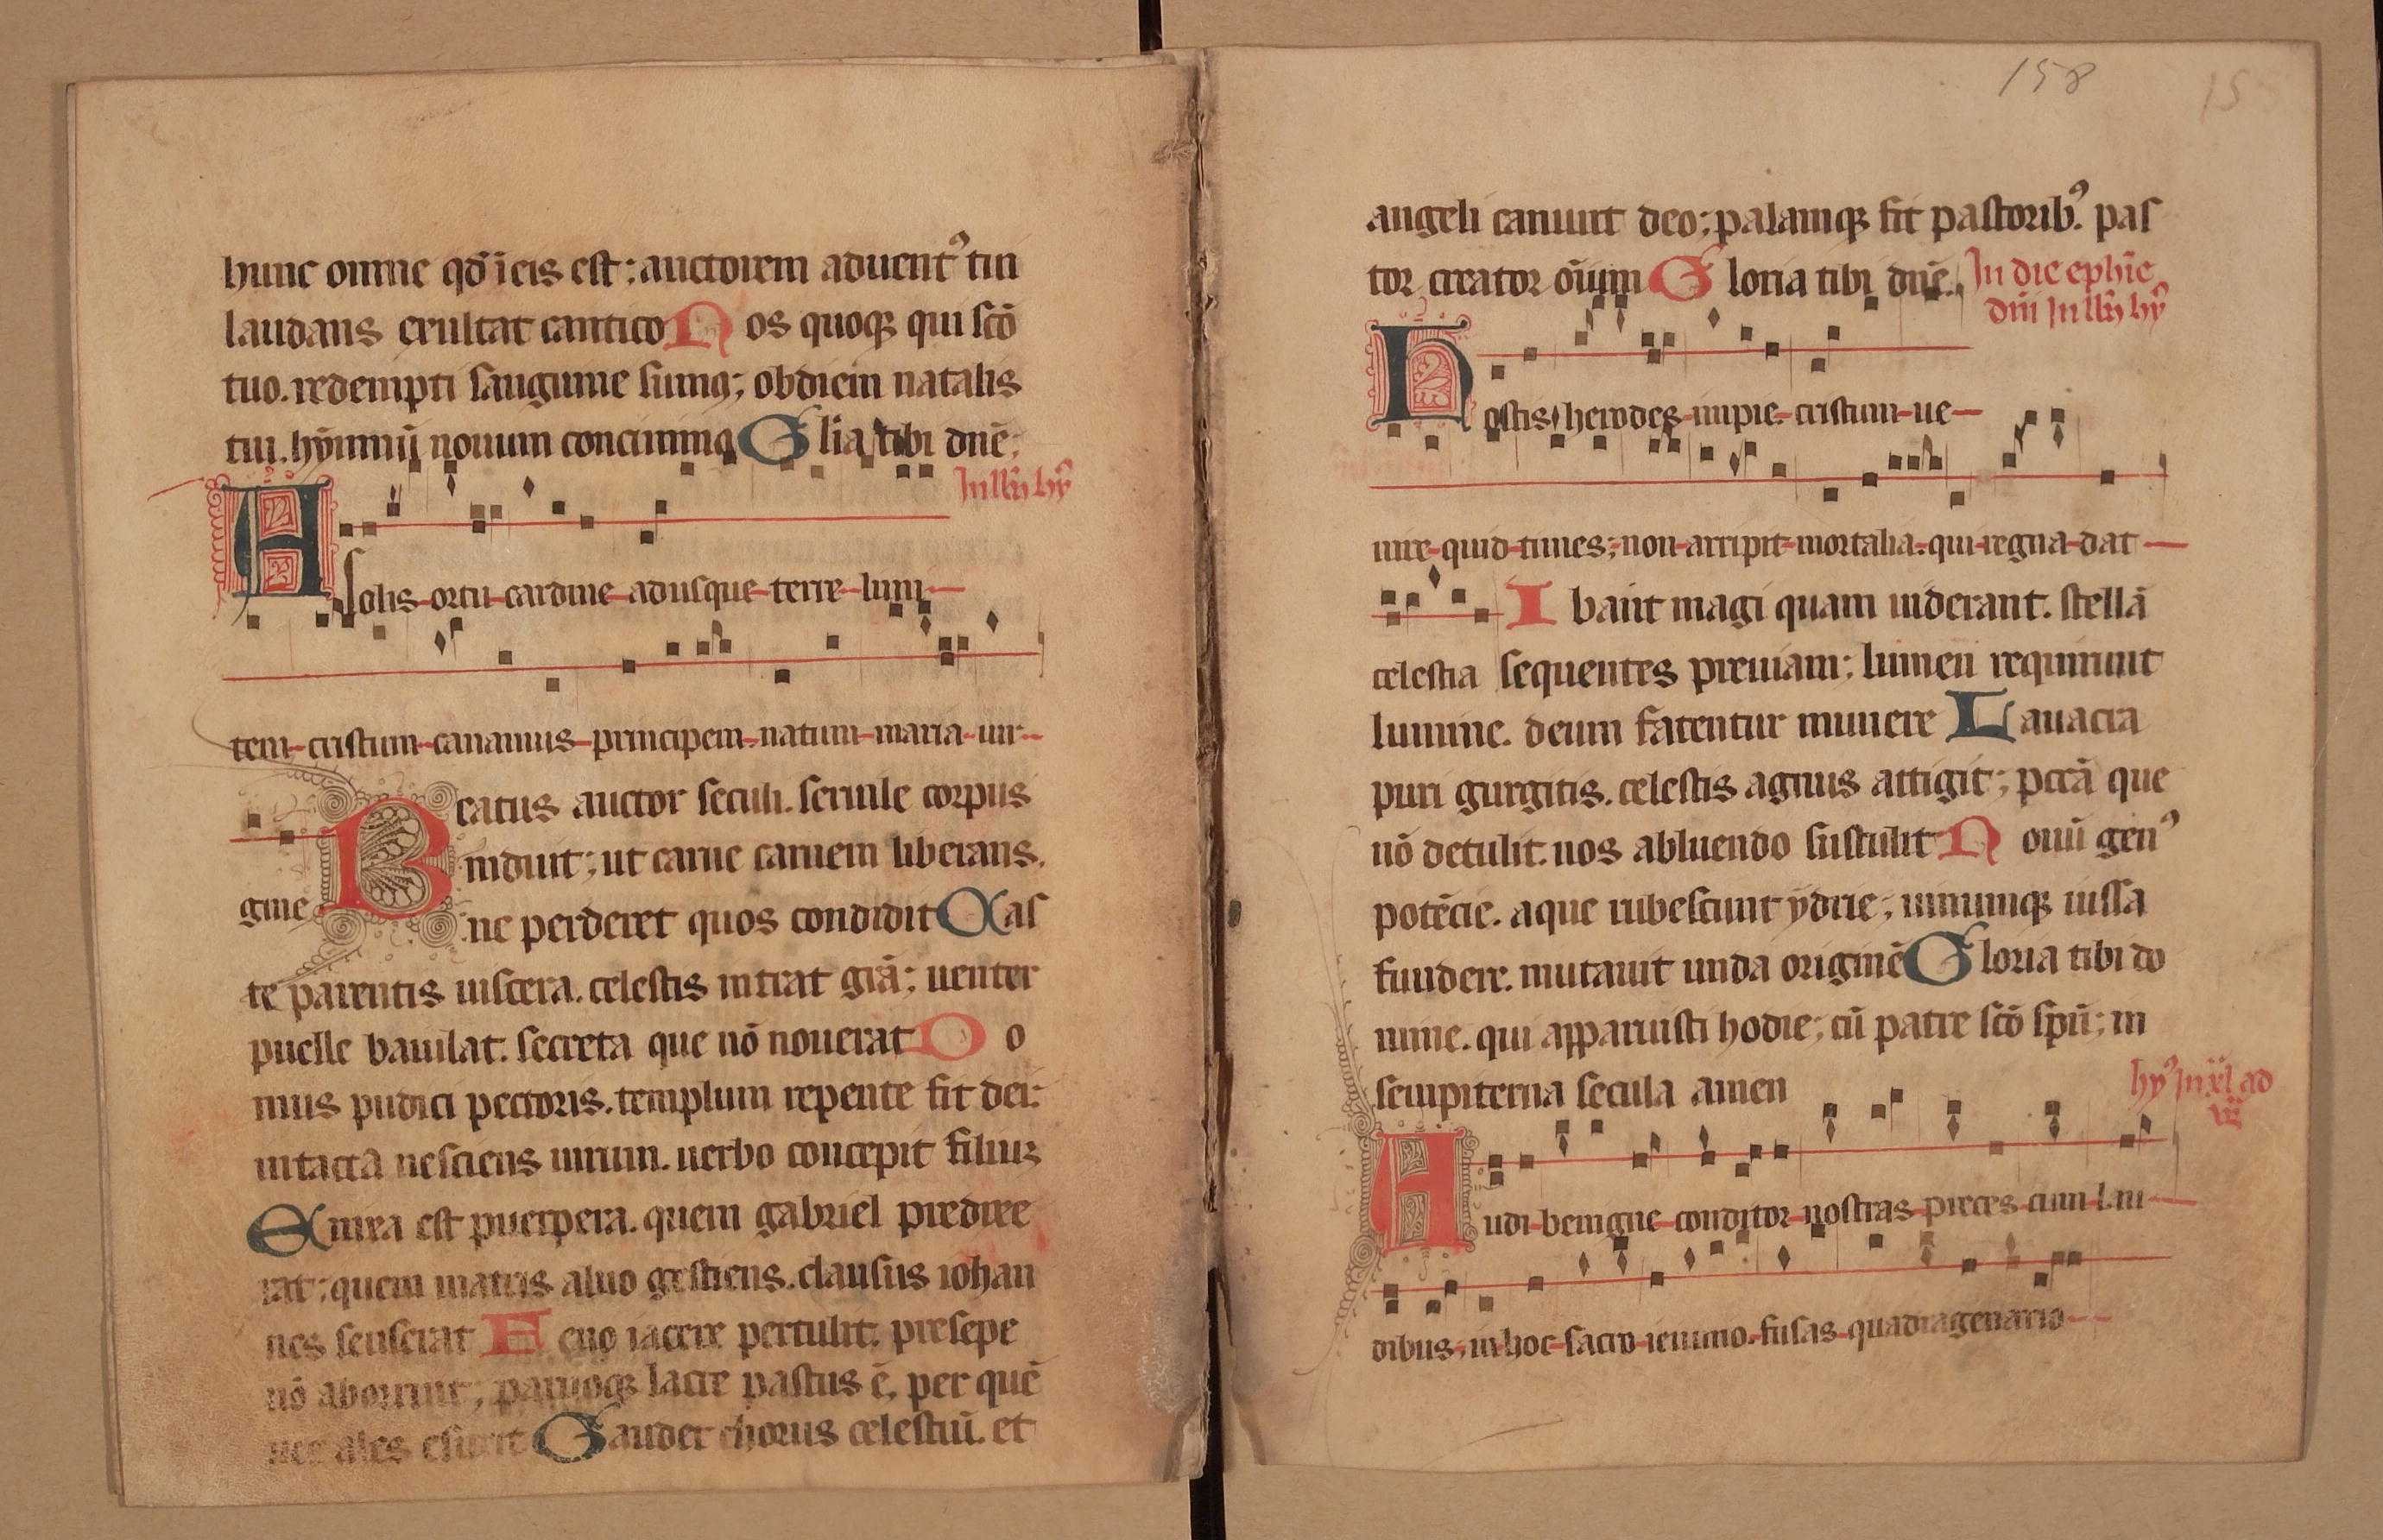 hunc omne qd̄ ī eis est; auctorem aduentꝰ tui
laudans exultat cantico Nos quoqꝫ qui scō
tuo. redempti sanguine sumꝰ; ob diem natalis
tui. hȳmnū nouum concinimꝰ Glīa tibi dn̄e;
In ll̄ hȳ
A solis ortu cardine adusque terre limi
tem cristum canamus principem natum maria uir
gine
Beatus auctor seculi. seruile corpus
induit; ut carne carnem liberans.
ne perderet quos condidit Cas
te parentis uiscera. celestis intrat grā; uenter
puelle baiulat. secreta que nō nouerat Do
mus pudici pectoris. templum repente fit dei;
intacta nesciens uirum. uerbo concepit filium
Enixa est puerpera. quem gabriel predixe
rat; quem matris aluo gestiens. clausus iohan
nes senserat Feno iacere pertulit. presepe
nō aborruit; paruoqꝫ lacte pastus ē, per quē
nec ales esurit Gaudet chorus celestiū. et
158
15
angeli canunt deo; palamqꝫ fit pastoribꝰ. pas
tor creator oīum Gloria tibi dn̄e.
In die ephīe
dn̄i In ll̄ hȳ
Hostis herodes impie. cristum ue
nire quid times; non arripit mortalia. qui regna dat
celestia
Ibant magi quam uiderant. stellā
sequentes preuiam; lumen requirunt
lumine. deum fatentur munere Lauacra
puri gurgitis. celestis agnus attigit; pccā que
nō detulit. nos abluendo sustulit Nouū genꝰ
potēcie. aque rubescunt ydrie; uinumqꝫ iussa
fundere. mutauit unda originē Gloria tibi do
mine. qui apparuisti hodie; cū patre scō spū; in
sempiterna secula amen
hȳ In xl ad
Audi benigne conditor nostras preces cum fle
tibus; in hoc sacro ieiunio. fusas quadragenario